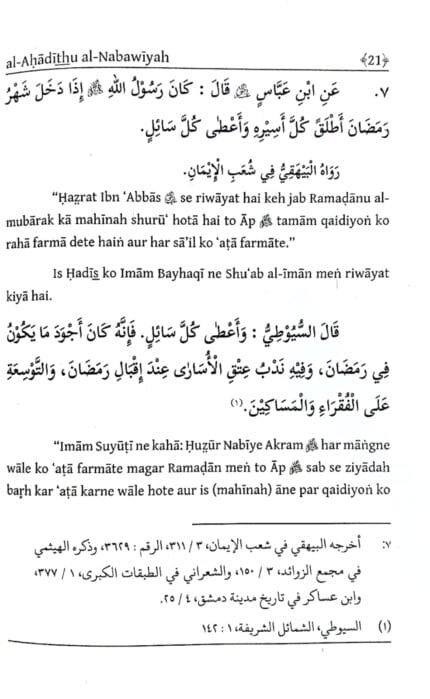 al-Aḥādīthu al-Nabawīyah ﴾21﴿
٧. عَنِ ابْنِ عَبَّاسٍ ﷺ قَالَ : كَانَ رَسُوْلُ اللهِ ﷺ إِذَا دَخَلَ شَهْرُ
رَمَضَانَ أَطْلَقَ كُلَّ أَسِيْرٍ وَأَعْطٰى كُلَّ سَائِلٍ.
رَوَاهُ الْبَيْهَقِيُّ فِي شُعَبِ الْإِيْمَانِ.
“Ḥaẓrat Ibn ‘Abbās se riwāyat hai keh jab Ramaḍānu al-
mubārak kā mahīnah shurū‘ hotā hai to Āp ﷺ tamām qaidiyoṅ ko
rahā farmā dete haiṅ aur har sā’il ko ‘aṭā farmāte.”
Is Ḥadīs̱ ko Imām Bayhaqī ne Shu‘ab al-īmān meṅ riwāyat
kiyā hai.
قَالَ السُّيُوْطِيُّ : وَأَعْطٰى كُلَّ سَائِلٍ. فَإِنَّهُ كَانَ أَجْوَدَ مَا يَكُوْنُ
فِي رَمَضَانَ، وَفِيْهِ نَدْبُ عِتْقِ الْأُسَارٰى عِنْدَ إِقْبَالِ رَمَضَانَ، وَالتَّوْسِعَةِ
عَلَى الْفُقَرَاءِ وَالْمَسَاكِيْنَ.(١)
“Imām Suyūṭī ne kahā: Ḥuẓūr Nabīye Akram ﷺ har māṅgne
wāle ko ‘aṭā farmāte magar Ramaḍān meṅ to Āp ﷺ sab se ziyādah
baṛh kar ‘aṭā karne wāle hote aur is (mahīnah) āne par qaidiyoṅ ko
٧: أخرجه البيهقي في شعب الإيمان، ٣ / ٣١١، الرقم : ٣٦٢٩، وذكره الهيثمي
في مجمع الزوائد، ٣ / ١٥٠، والشعراني في الطبقات الكبرى، ١ / ٣٧٧،
وابن عساكر في تاريخ مدينة دمشق، ٤ / ٢٥.
(١) السيوطي، الشمائل الشريفة، ١ : ١٤٢